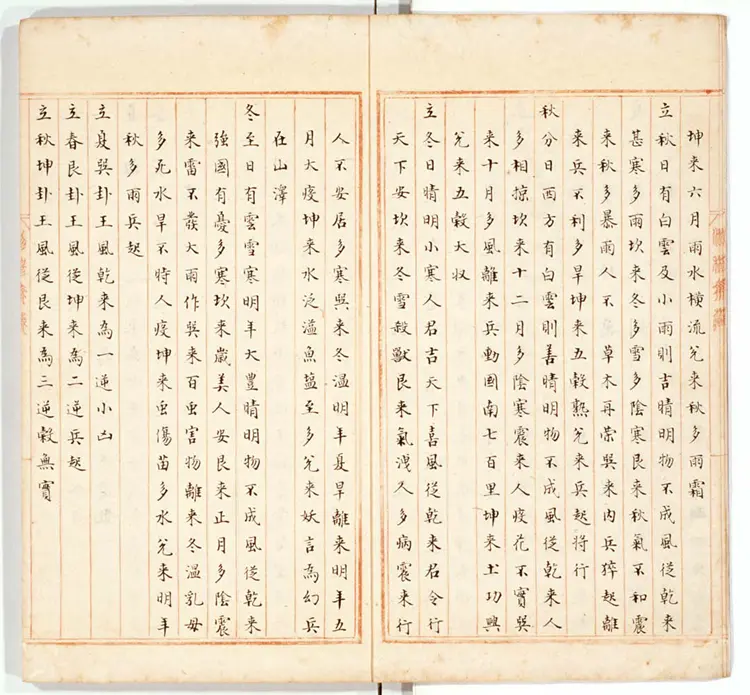 坤来六月雨水横流兊来秋多雨霜
立秋日有白雲及小雨則吉晴明物不成風從乾来
甚寒多雨坎来冬多雪多陰寒艮来秋氣不和震
来秋多暴雨人不 草木再荣巽来内兵猝起離
来兵不利多旱坤来五穀熟兊来兵起将行
秋分日西方有白雲則善晴明物不成風從乾来人
多相掠坎来十二月多陰寒震来人疫花不實巽
来十月多風離来兵動國南七百里坤来土功興
兊来五穀大収
立冬日晴明小寒人君吉天下喜風從乾来君令行
天下安坎来冬雪殺獸艮来氣洩人多病震来行
人不安居多寒巽来冬温明年夏旱離来明年五
月大疫坤来水泛溢魚盬至多兊来妖言為幻兵
在山澤
冬至日有雲雪寒明年大豊晴明物不成風從乾来
強國有憂多寒坎来歲美人安艮来正月多陰震
来雷不發大雨作巽来百虫害物離来冬温乳母
多死水旱不時人疫坤来虫傷苗多水兊来明年
秋多雨兵起
立夏巽卦王風乾来為一逆小凶
立春艮卦王風從坤来為二逆兵起
立秋坤卦王風從艮来為三逆穀無實